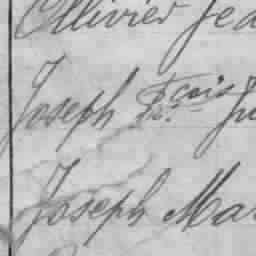 Ollivier Jea
Joseph Fçois Ju
Joseph Mar